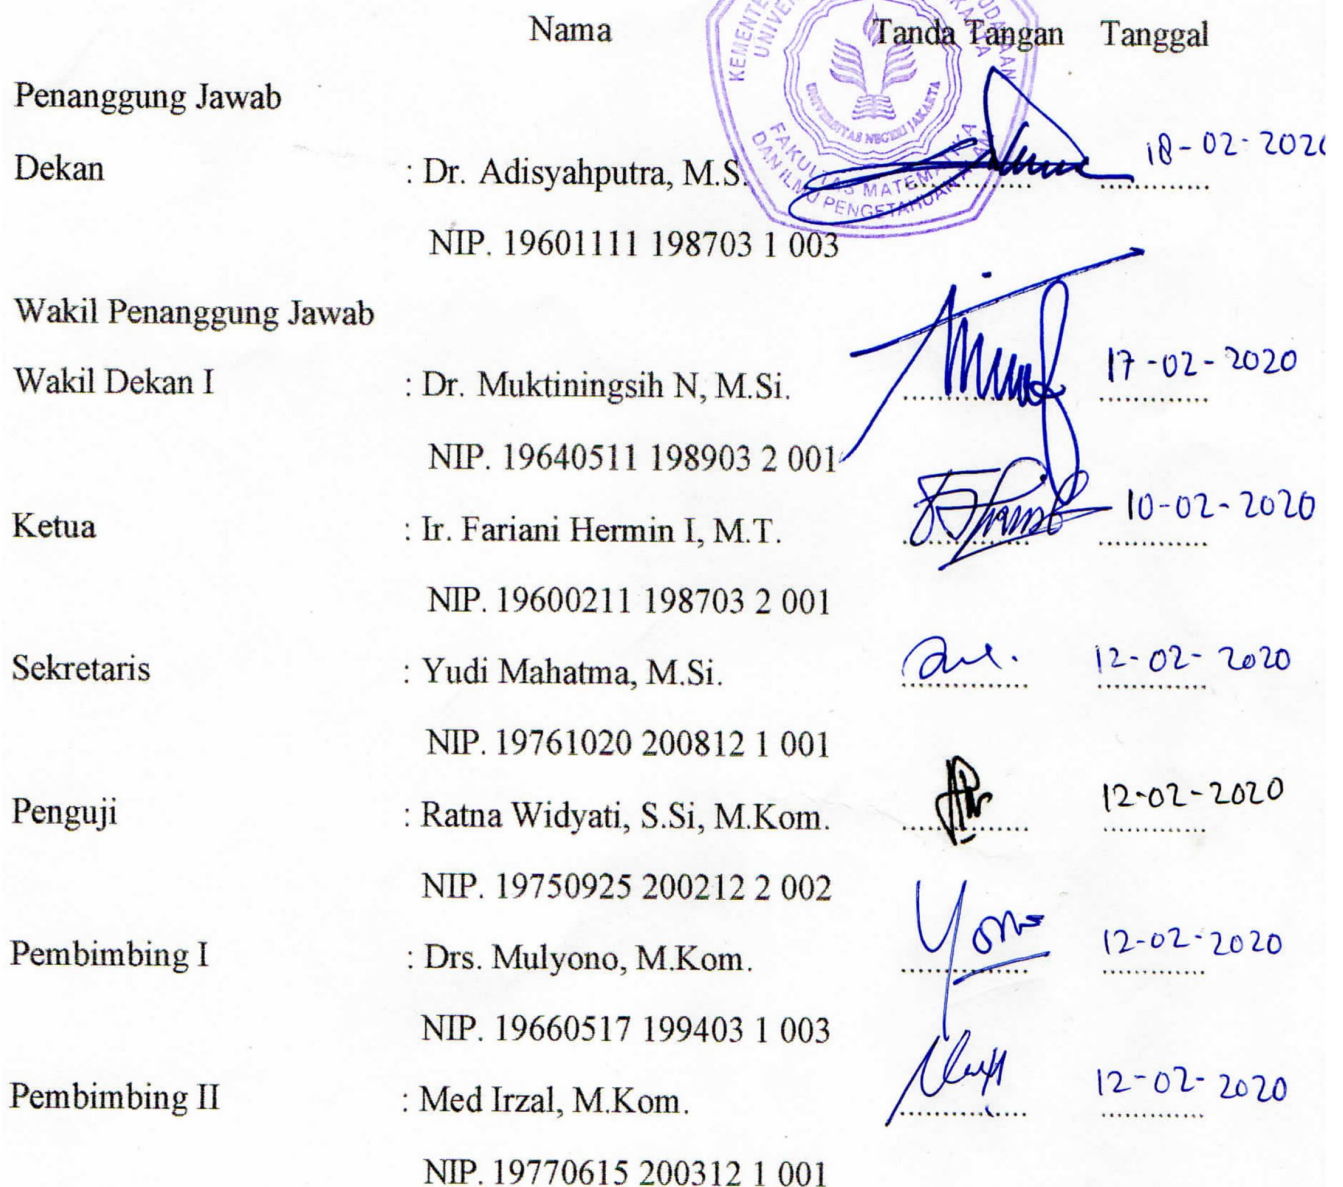 Nama Tanda Tangan Tanggal
Penanggung Jawab
Dekan : Dr. Adisyahputra, M.S. 18-02-2020
NIP. 19601111 198703 1 003
Wakil Penanggung Jawab
Wakil Dekan I : Dr. Muktiningsih N, M.Si. 17-02-2020
NIP. 19640511 198903 2 001
Ketua : Ir. Fariani Hermin I, M.T. 10-02-2020
NIP. 19600211 198703 2 001
Sekretaris : Yudi Mahatma, M.Si. 12-02-2020
NIP. 19761020 200812 1 001
Penguji : Ratna Widyati, S.Si, M.Kom. 12-02-2020
NIP. 19750925 200212 2 002
Pembimbing I : Drs. Mulyono, M.Kom. 12-02-2020
NIP. 19660517 199403 1 003
Pembimbing II : Med Irzal, M.Kom. 12-02-2020
NIP. 19770615 200312 1 001
UNIVERSITAS NEGERI JAKARTA
FAKULTAS MATEMATIKA
DAN ILMU PENGETAHUAN